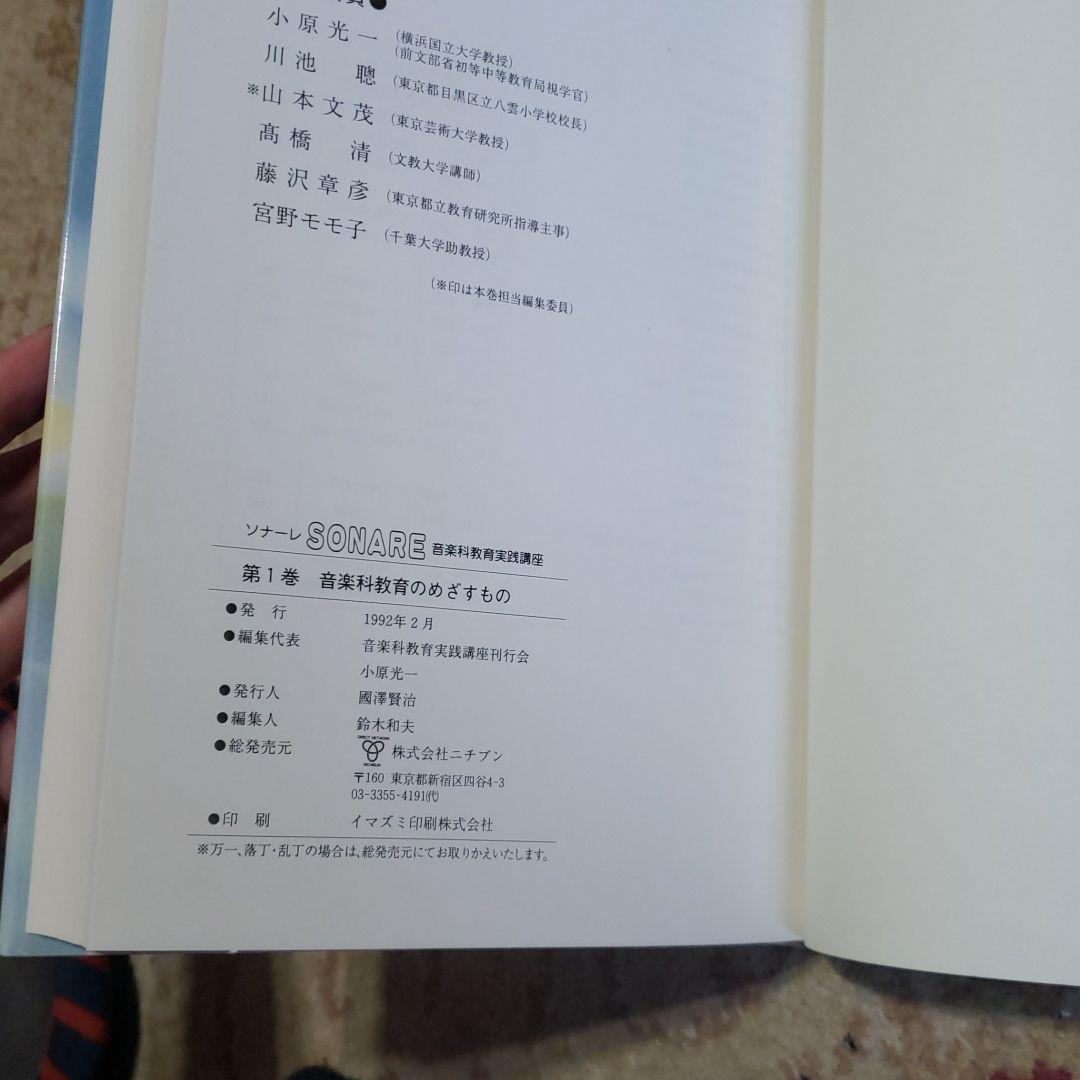 員●
小原光一 (横浜国立大学教授)
(前文部省初等中等教育局視学官)
川池 聰 (東京都目黒区立八雲小学校校長)
※山本文茂 (東京芸術大学教授)
髙橋 清 (文教大学講師)
藤沢章彦 (東京都立教育研究所指導主事)
宮野モモ子 (千葉大学助教授)
(※印は本巻担当編集委員)
ソナーレ SONARE 音楽科教育実践講座
第1巻 音楽科教育のめざすもの
●発 行 1992年2月
●編集代表 音楽科教育実践講座刊行会
小原光一
●発行人 國澤賢治
●編集人 鈴木和夫
●総発売元 DIRECT NETWORK NICHIBUN 株式会社ニチブン
〒160 東京都新宿区四谷4-3
03-3355-4191㈹
●印 刷 イマズミ印刷株式会社
※万一、落丁・乱丁の場合は、総発売元にてお取りかえいたします。